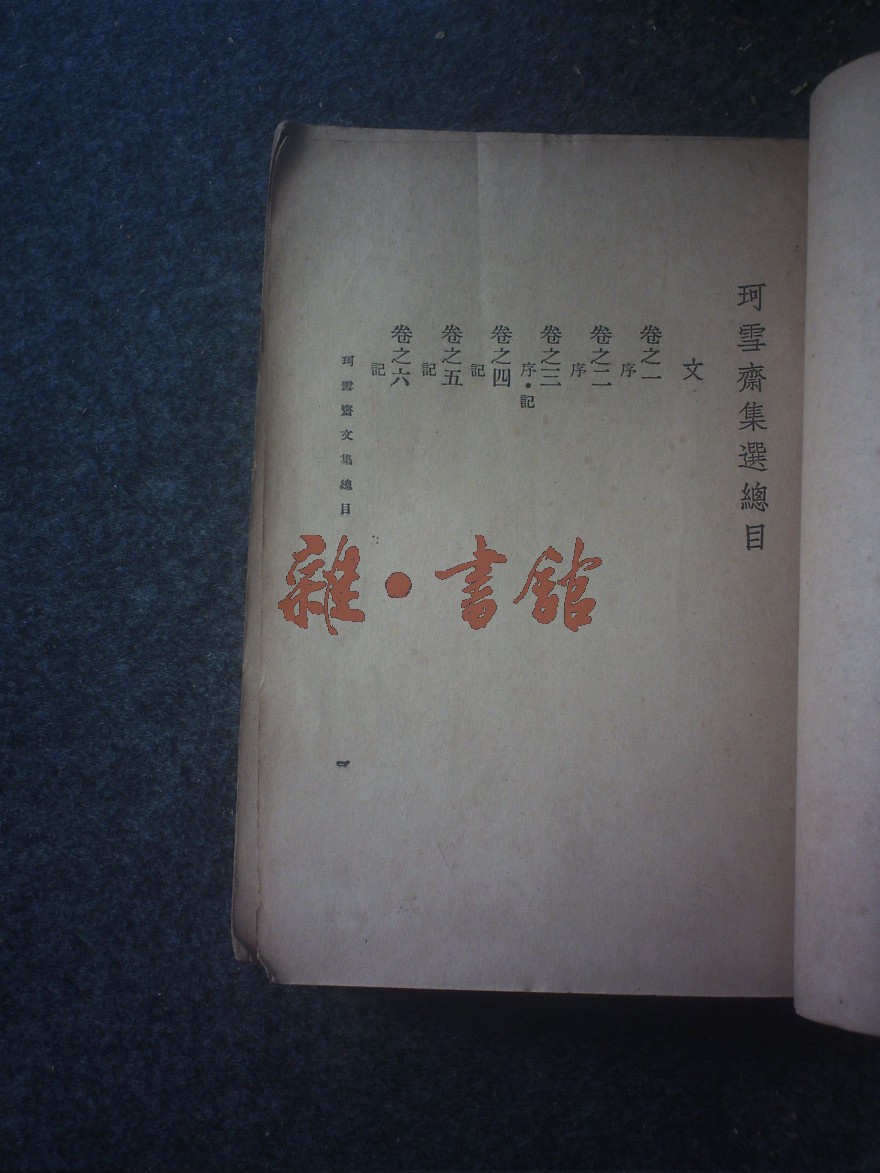 珂雪齋集選總目
文
卷之一
序
卷之二
序
卷之三
序・記
卷之四
記
卷之五
記
卷之六
記
珂雪齋文集總目
雜・書館